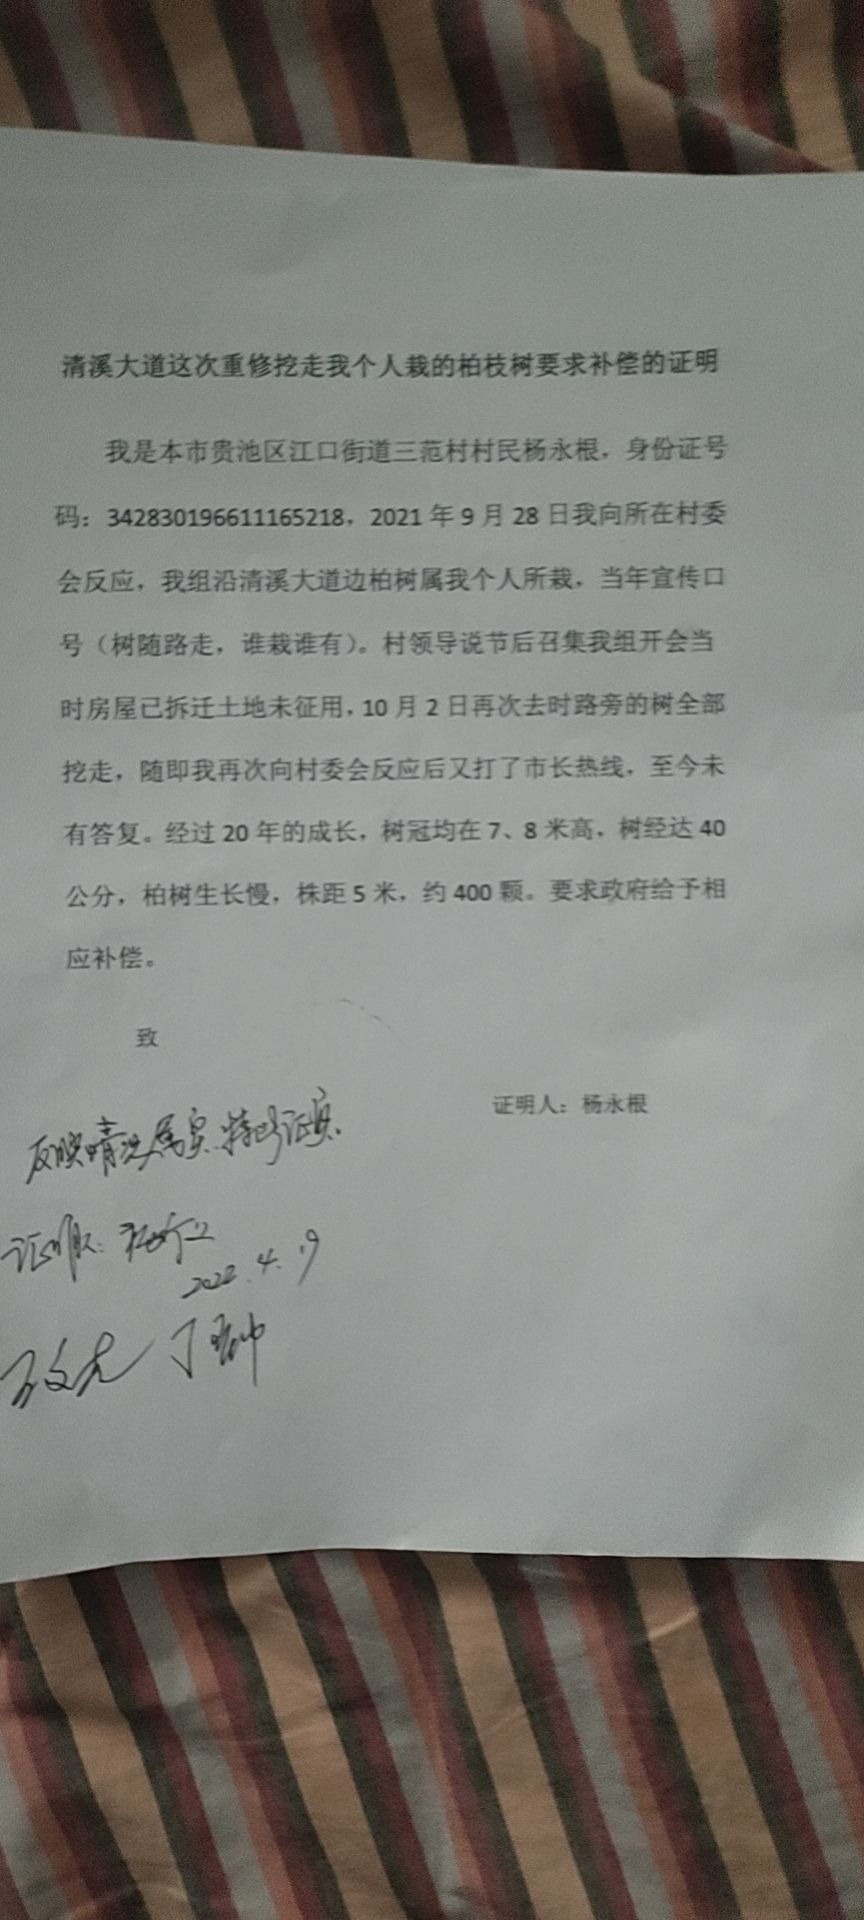 清溪大道这次重修挖走我个人栽的柏枝树要求补偿的证明
我是本市贵池区江口街道三范村村民杨永根，身份证号
码：342830196611165218，2021年9月28日我向所在村委
会反应，我组沿清溪大道边柏树属我个人所栽，当年宣传口
号（树随路走，谁栽谁有）。村领导说节后召集我组开会当
时房屋已拆迁土地未征用，10月2日再次去时路旁的树全部
挖走，随即我再次向村委会反应后又打了市长热线，至今未
有答复。经过20年的成长，树冠均在7、8米高，树经达40
公分，柏树生长慢，株距5米，约400颗。要求政府给予相
应补偿。
致
证明人：杨永根
反映情况属实.特此证实.
证明人：
2022.4.19